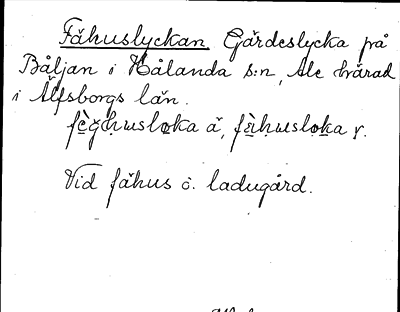 Fähuslyckan Gärdeslycka på
Båljan i Hålanda s:n, Ale härad
i Älfsborgs län.
Vid fähus o. ladugård.